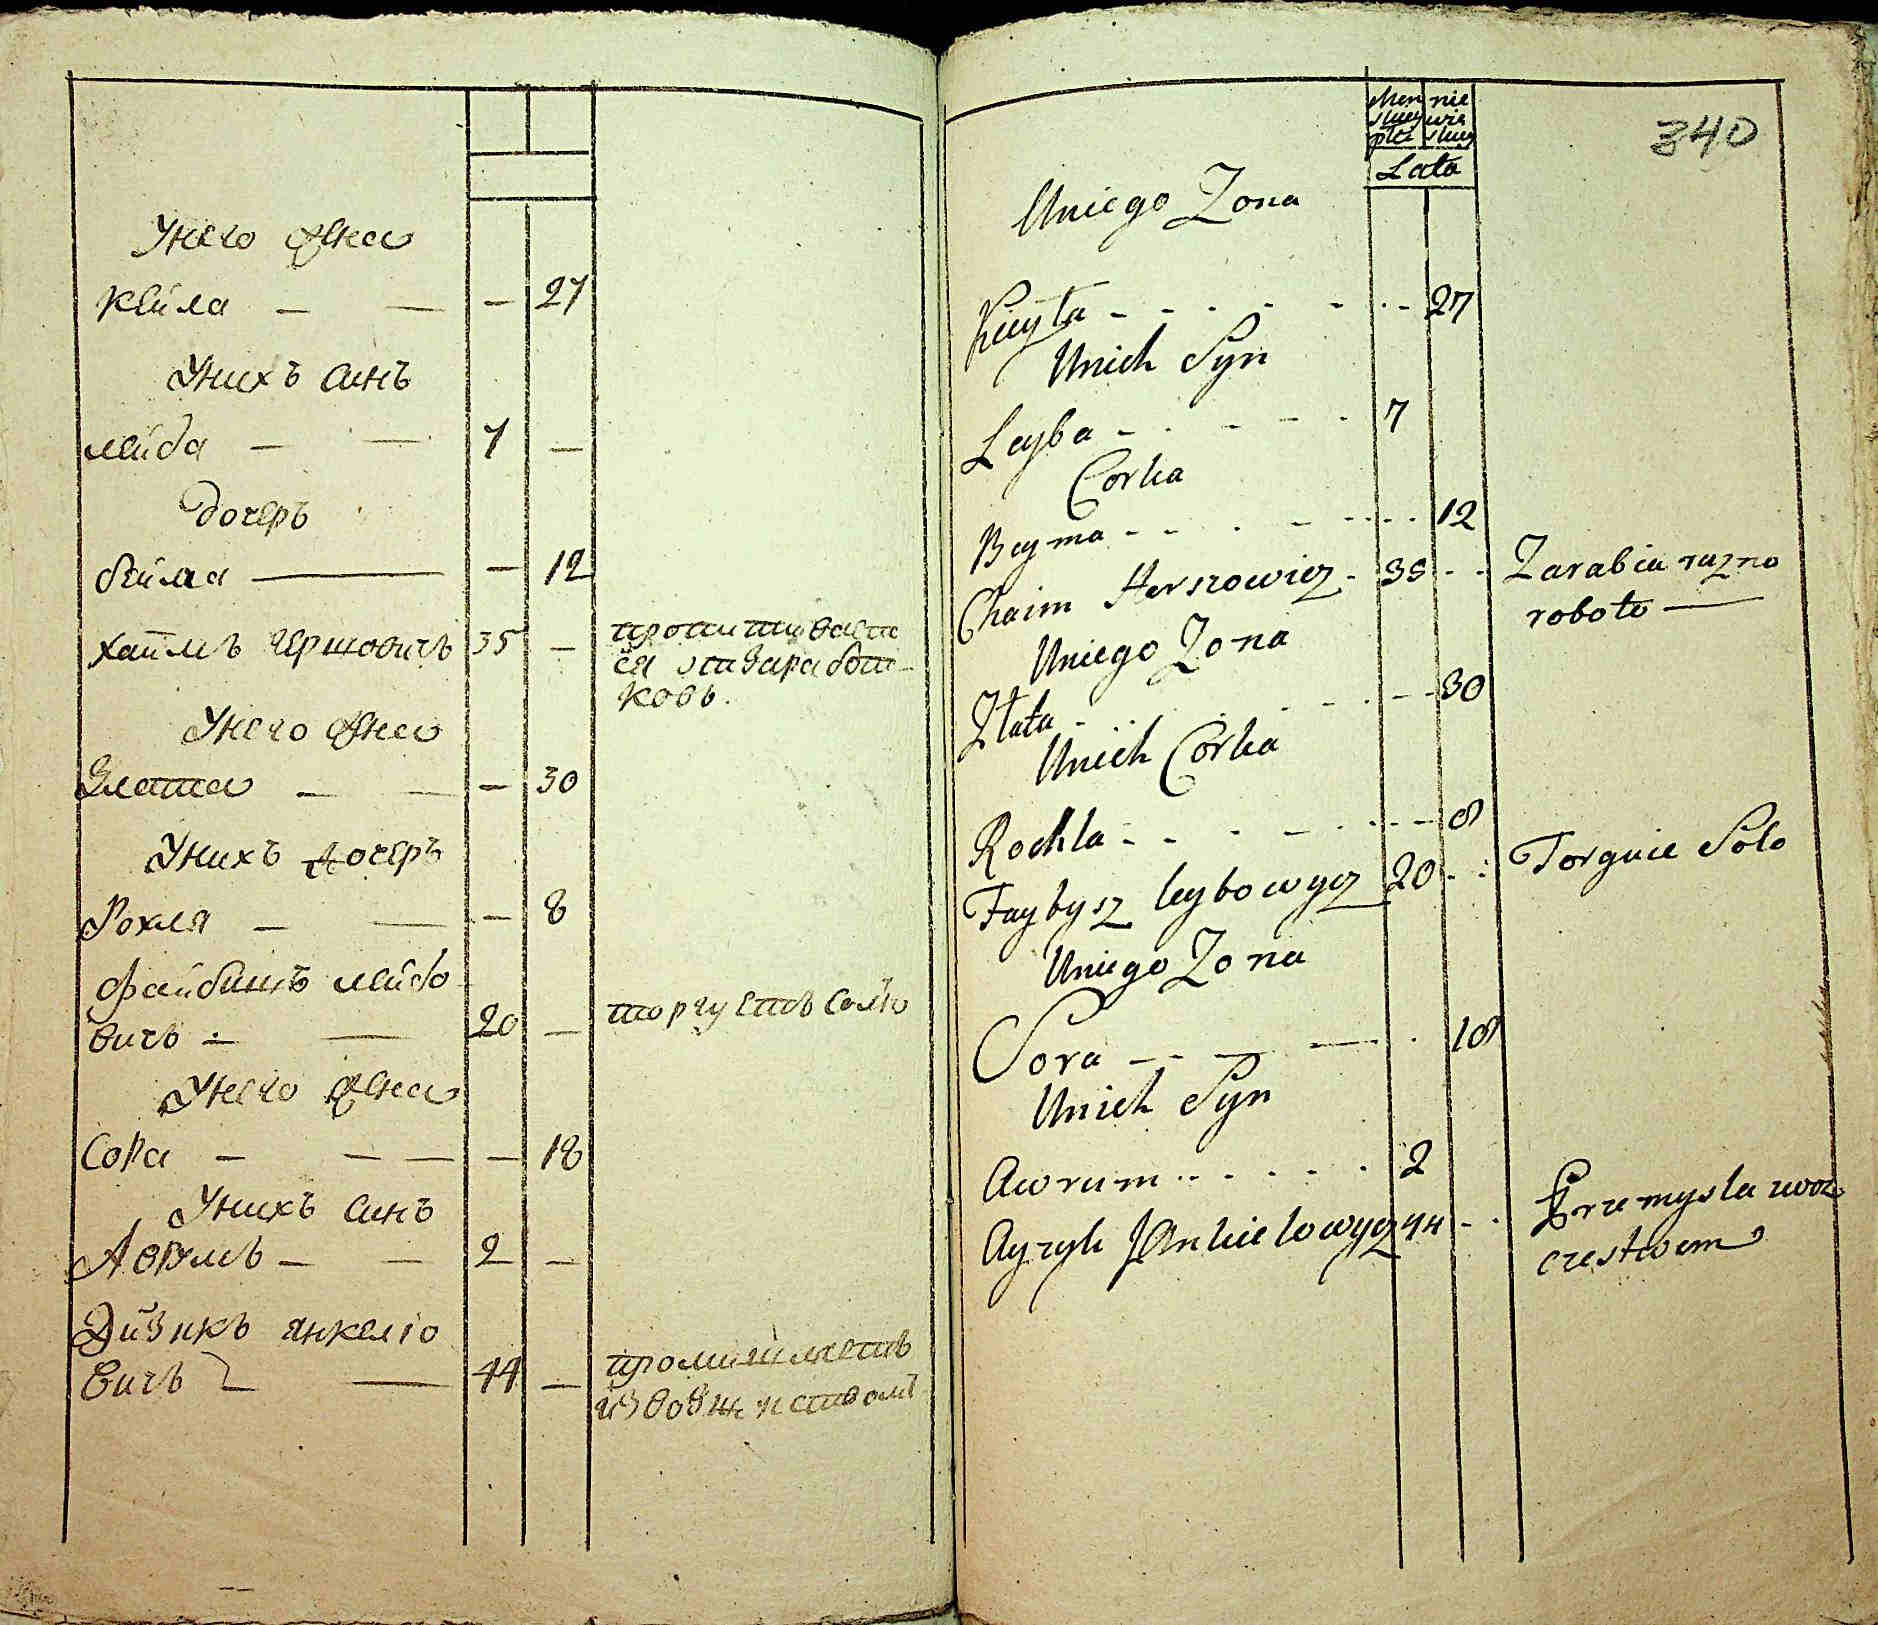 Унего жена
Кейла — — — 27
Унихъ синъ
лейба — — 7 —
дочеръ
бейма — — 12
хаимъ гершовичъ 35 — пропитивает
ся отзаработ-
ковъ.
Унего жена
Злата — — — 30
Унихъ дочеръ
Рохля — — — 8
файбишъ лейбо
вичъ — — 20 — торгуетъ солю
Унего жена
Сора — — — — 18
Унихъ синъ
Аврумъ — — 2 —
Айзикъ янкелю
вичъ — 44 — промишляетъ
извозничествомъ
340
Męz
plci nie
Lata
Uniego Zona
Keyła - - - - - - - 27
Unich Syn
Leyba - - - - - 7
Corka
Beyma - - - - - - - 12
Chaim Herszowicz - 35 - - Zarabia razno
roboto —
Uniego Zona
Złata - - - - - - - 30
Unich Corka
Rochla - - - - - - - 8
Faybysz leybowycz 20 - - Torguie Solo
Uniego Zona
Sora - - - - - - 18
Unich Syn
Awrum - - - - - 2
Ayzyk Jankielowycz 44 - - Przemysla woz
czestwem